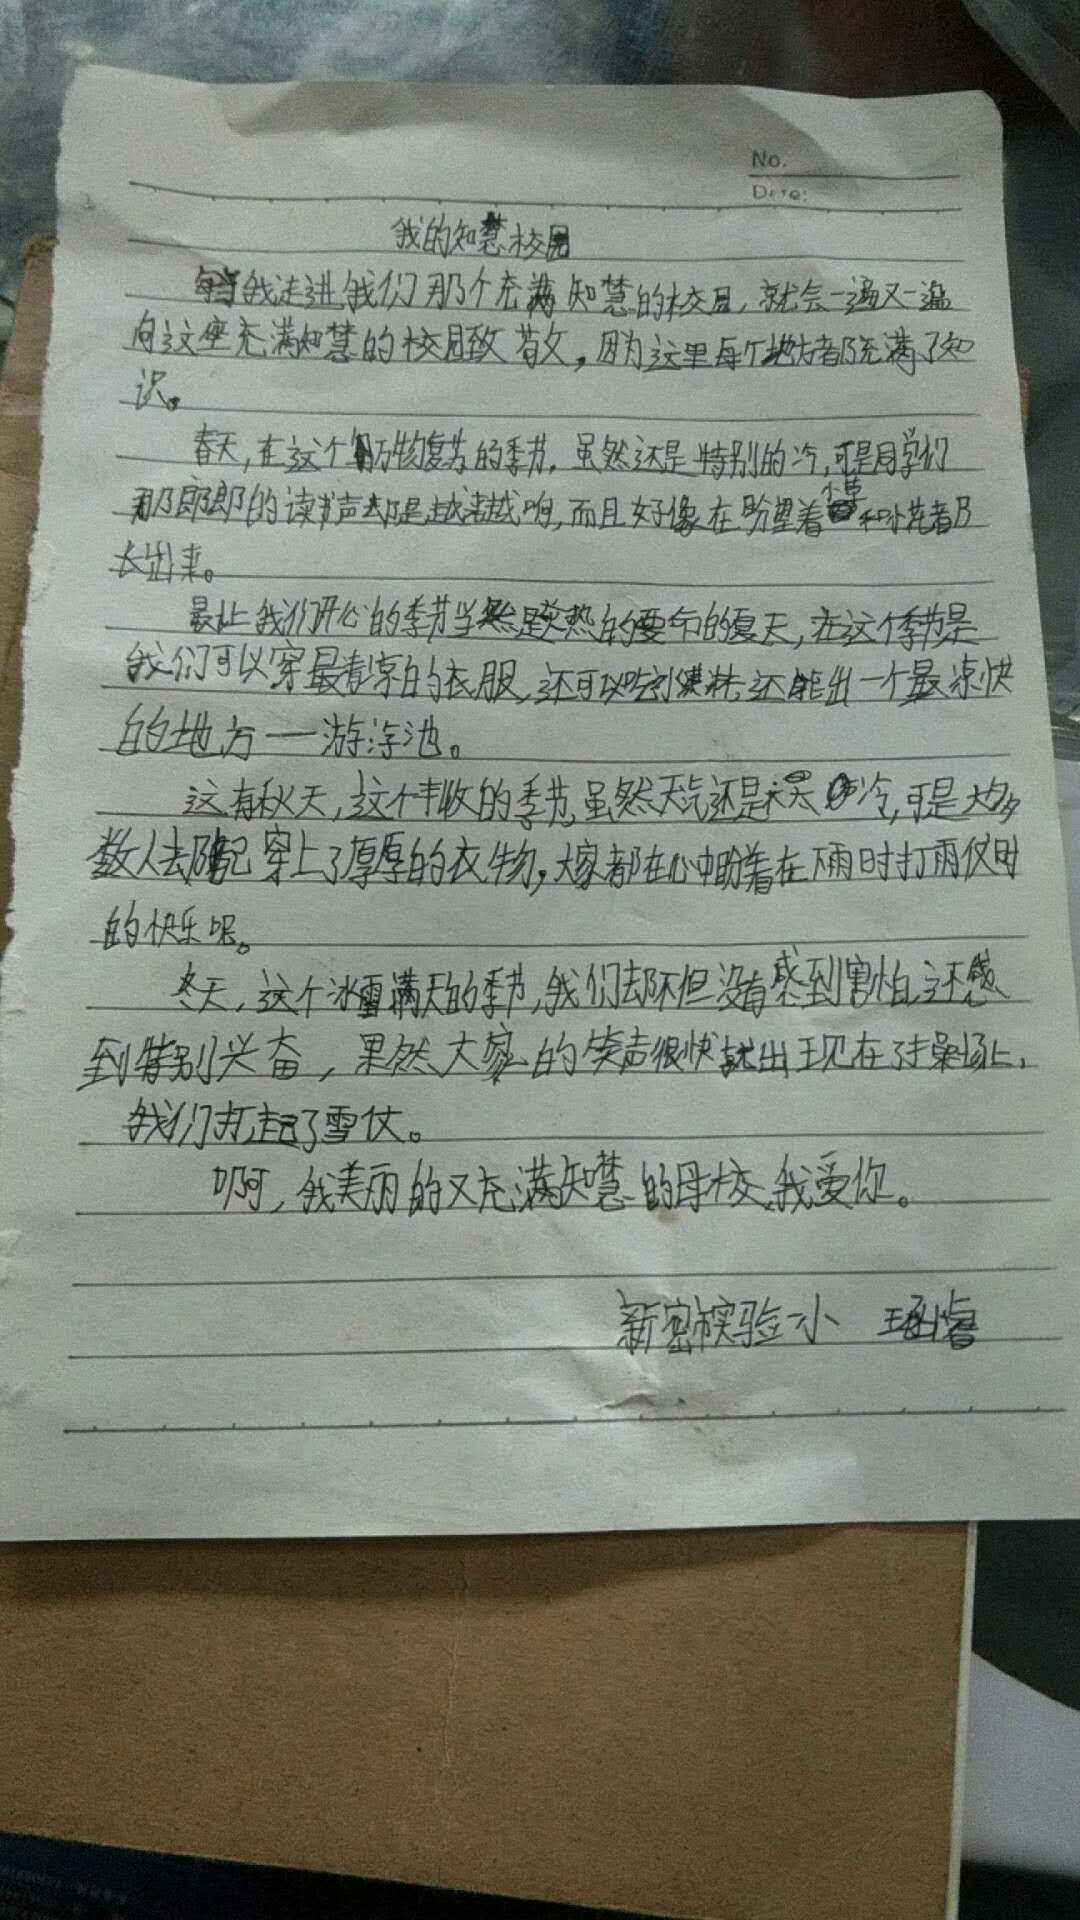 No.
Date:
我的知慧校园
每当我走进我们那个充满知慧的校园，就会一遍又一遍
向这座充满知慧的校园致敬，因为这里每个地方都充满了知
识。
春天，在这个万物复苏的季节，虽然还是特别的冷，可是同学们
那郎郎的读书声却是越来越响，而且好像在盼望着小草和小花都
长出来。
最让我们开心的季节当然是炎热的要命的夏天，在这个季节是
我们可以穿最清凉的衣服，还可以吃到冰淇淋，还能出一个最凉快
的地方——游泳池。
这有秋天，这个丰收的季节，虽然天气还是冷，可是大多
数人去都已穿上了厚厚的衣物，大家都在心中盼着在下雨时打雨仗时
的快乐呢。
冬天，这个冰雪满天的季节，我们却不但没有感到害怕，还感
到特别兴奋，果然大家的笑声很快就出现在了操场上，
我们打起了雪仗。
啊，我美丽的又充满知慧的母校，我爱你。
新密市实验一小 王涵睿